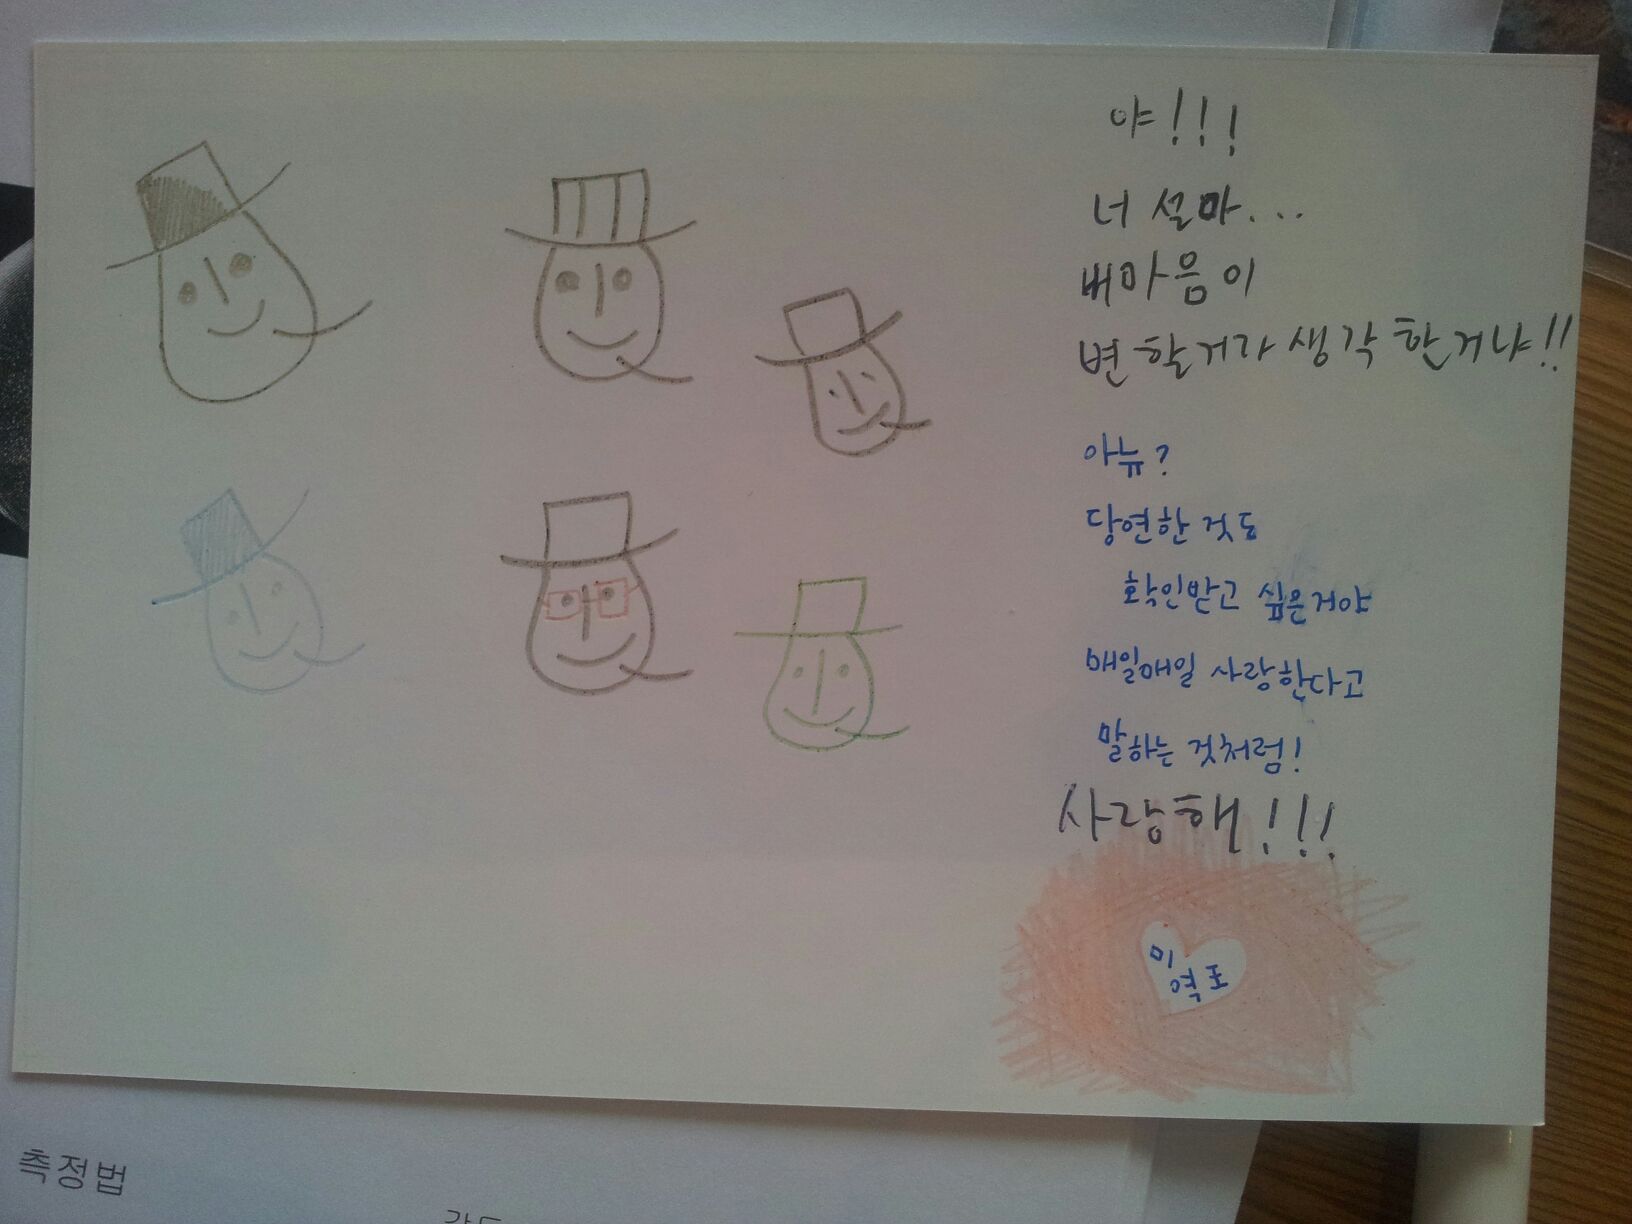 야!!!
너 설마...
내마음이
변할거라 생각한거냐!!
아뉴?
당연한 것도
확인받고 싶은거야
매일매일 사랑한다고
말하는 것처럼!
사랑해!!!
미
역표
측정법